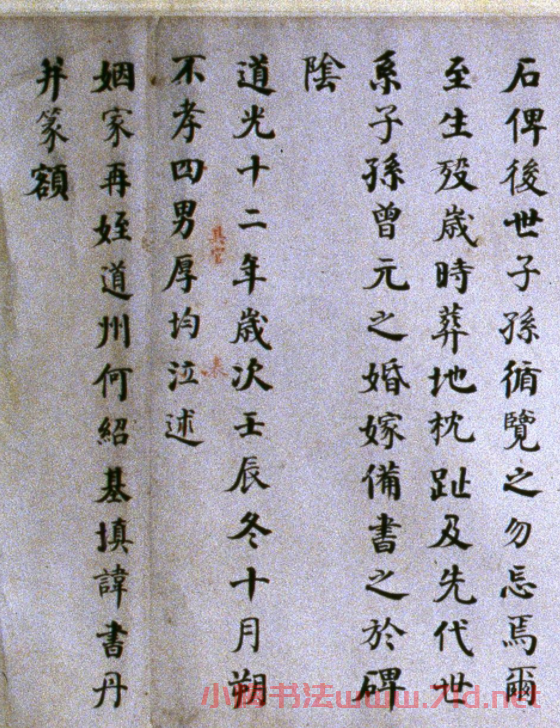 石俾後世子孫循覽之勿忘焉爾
至生歿歲時葬地枕趾及先代世
系子孫曾元之婚嫁備書之於碑
陰
道光十二年歲次壬辰冬十月朔
不孝四男厚均泣述
姻家再姪道州何紹基填諱書丹
并篆額
具官
小楷书法www.7jtd.net